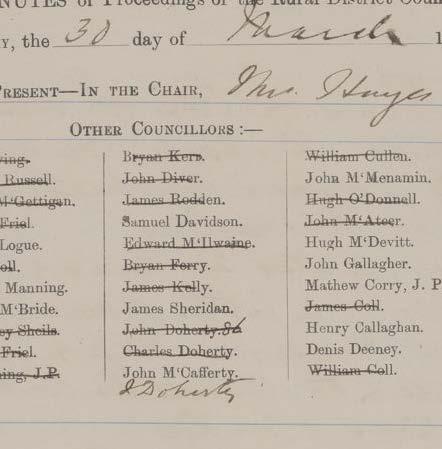 NUTES of Proceedings of the Rural District Coun
Y, the 30 day of March 1
PRESENT—IN THE CHAIR, Hayes
OTHER COUNCILLORS :—
ving. Bryan Kerr. William Cullen.
Russell. John Diver. John M'Menamin.
M'Gettigan. James Rodden. Hugh O'Donnell.
Friel. Samuel Davidson. John M'Ateer.
Logue. Edward M'Ilwaine. Hugh M'Devitt.
oll. Bryan Ferry. John Gallagher.
Manning. James Kelly. Mathew Corry, J. P
M'Bride. James Sheridan. James Coll.
ey Sheils. John Doherty. Henry Callaghan.
Friel. Charles Doherty. Denis Deeney.
ning, J.P. John M'Cafferty. William Coll.
J Doherty